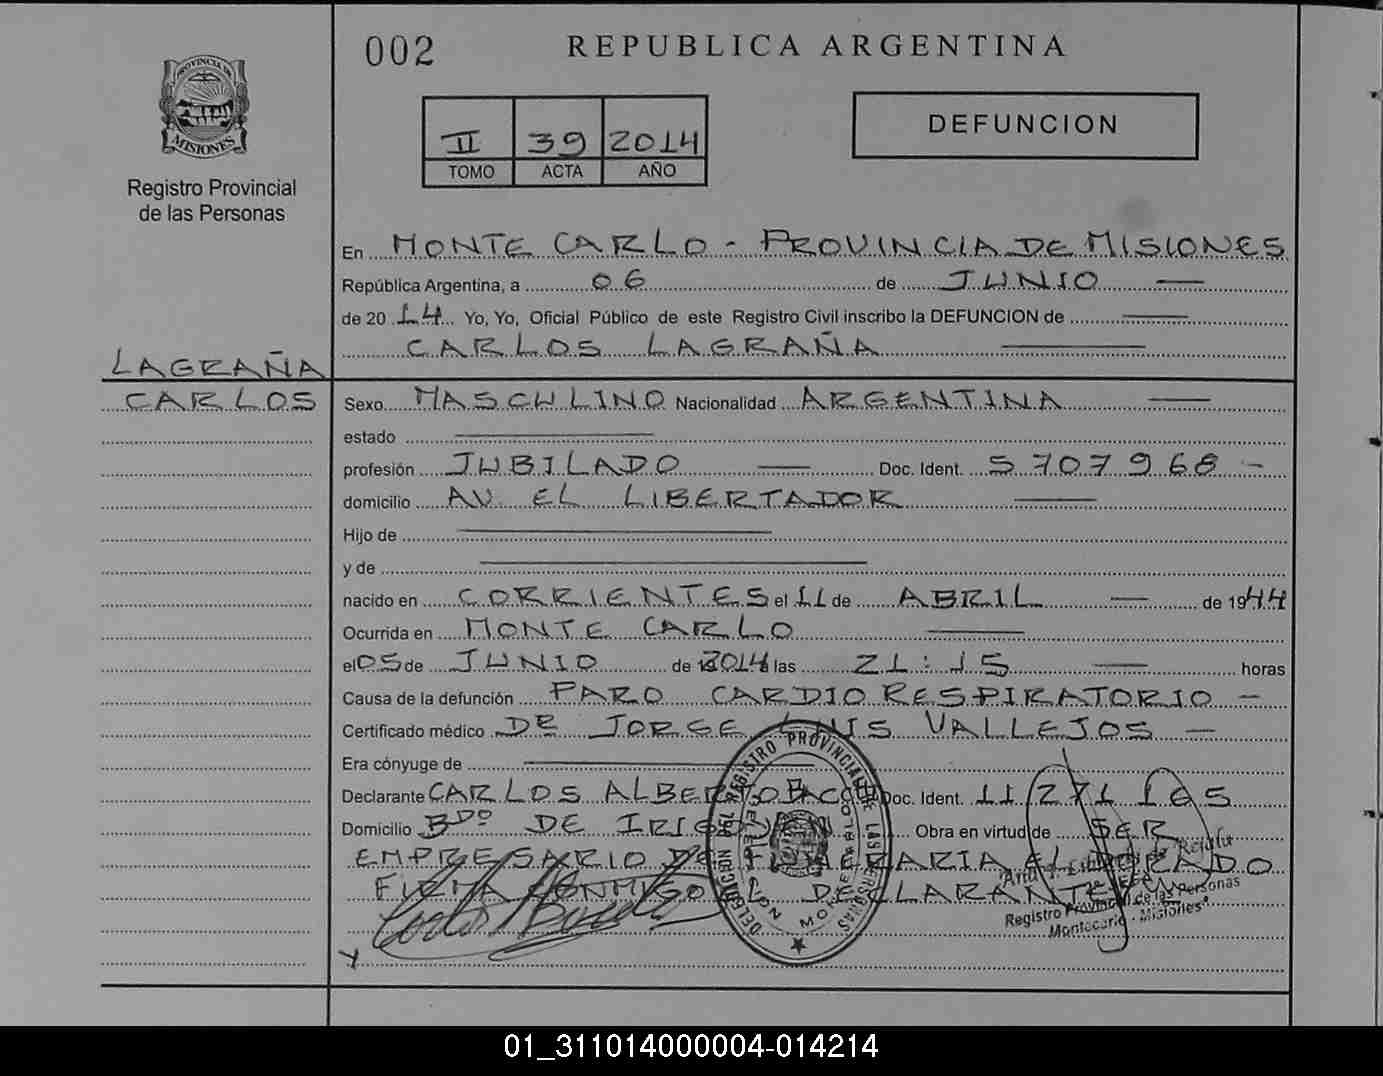 002
REPUBLICA ARGENTINA
PROVINCIA DE
MISIONES
II 39 2014
TOMO ACTA AÑO
DEFUNCION
Registro Provincial
de las Personas
En MONTE CARLO - PROVINCIA DE MISIONES
República Argentina, a 06 de JUNIO
de 20 14 Yo, Yo, Oficial Público de este Registro Civil inscribo la DEFUNCION de
CARLOS LAGRAÑA
LAGRAÑA
CARLOS
Sexo MASCULINO Nacionalidad ARGENTINA
estado
profesión JUBILADO Doc. Ident. 5707968 -
domicilio AV. EL LIBERTADOR
Hijo de
y de
nacido en CORRIENTES el 11 de ABRIL de 1944
Ocurrida en MONTE CARLO
el 05 de JUNIO de 2014 a las 21:15 horas
Causa de la defunción PARO CARDIO RESPIRATORIO -
Certificado médico DR JORGE LUIS VALLEJOS -
Era cónyuge de
Declarante CARLOS ALBERTO Doc. Ident. 11 271 165
Domicilio BDO DE IRIGOYEN Obra en virtud de SER
EMPRESARIO DE FUNERARIA EL
FIRMA CONMIGO EL DECLARANTE
DELEGACION DEL REGISTRO PROVINCIAL DE LAS PERSONAS
MONTECARLO
MISIONES
Registro Provincial de las Personas
Montecarlo - Misiones
01_311014000004-014214